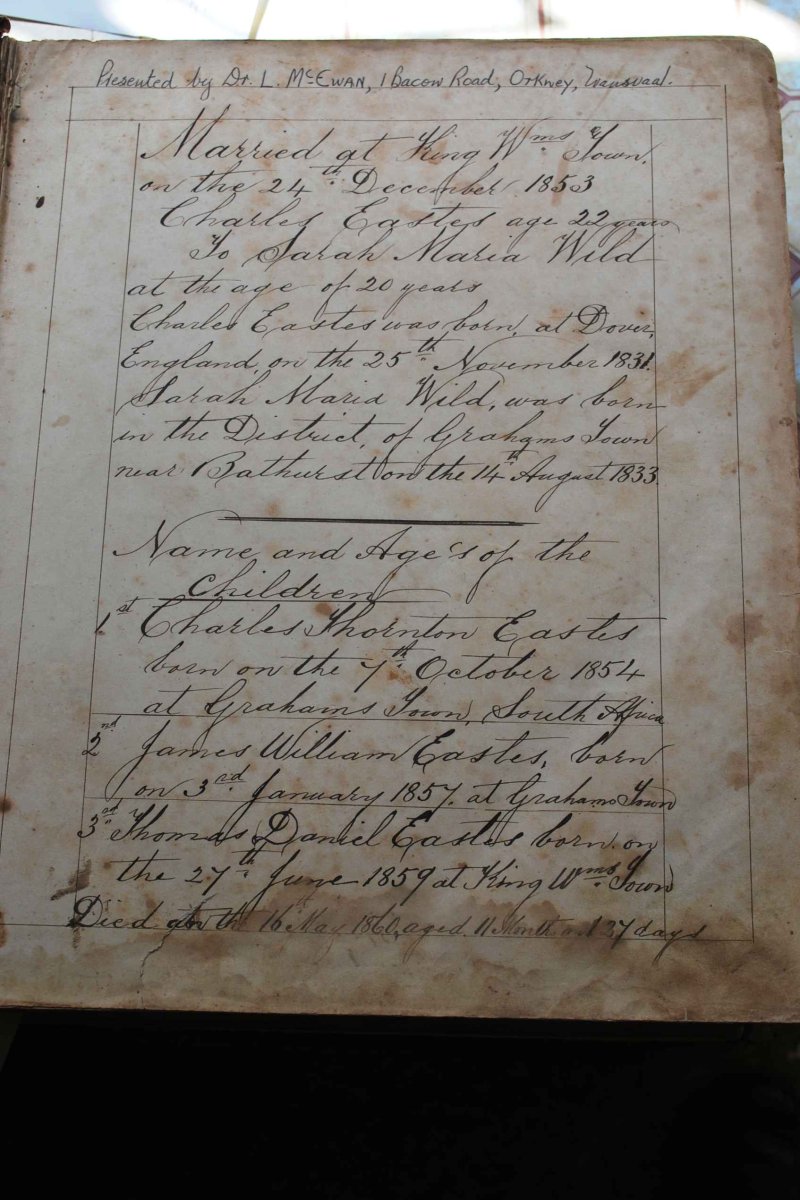 Presented by Dr. L. McEWAN, 1 Bacon Road, Orkney, Transvaal.
Married at King Wms Town.
on the 24th December 1853
Charles Eastes age 22 years
To Sarah Maria Wild
at the age of 20 years
Charles Eastes was born, at Dover,
England, on the 25th November 1831.
Sarah Maria Wild, was born
in the District, of Grahams Town
near Bathurst on the 14th August 1833.
Name and Age's of the
Children
1st Charles Thornton Eastes
born on the 7th October 1854
at Grahams Town, South Africa
2nd James William Eastes, born
on 3rd January 1857. at Grahams Town
3rd Thomas Daniel Eastes born on
the 27th June 1859 at King Wms Town
Died on the 16th May 1860, aged 11 Month 27 days